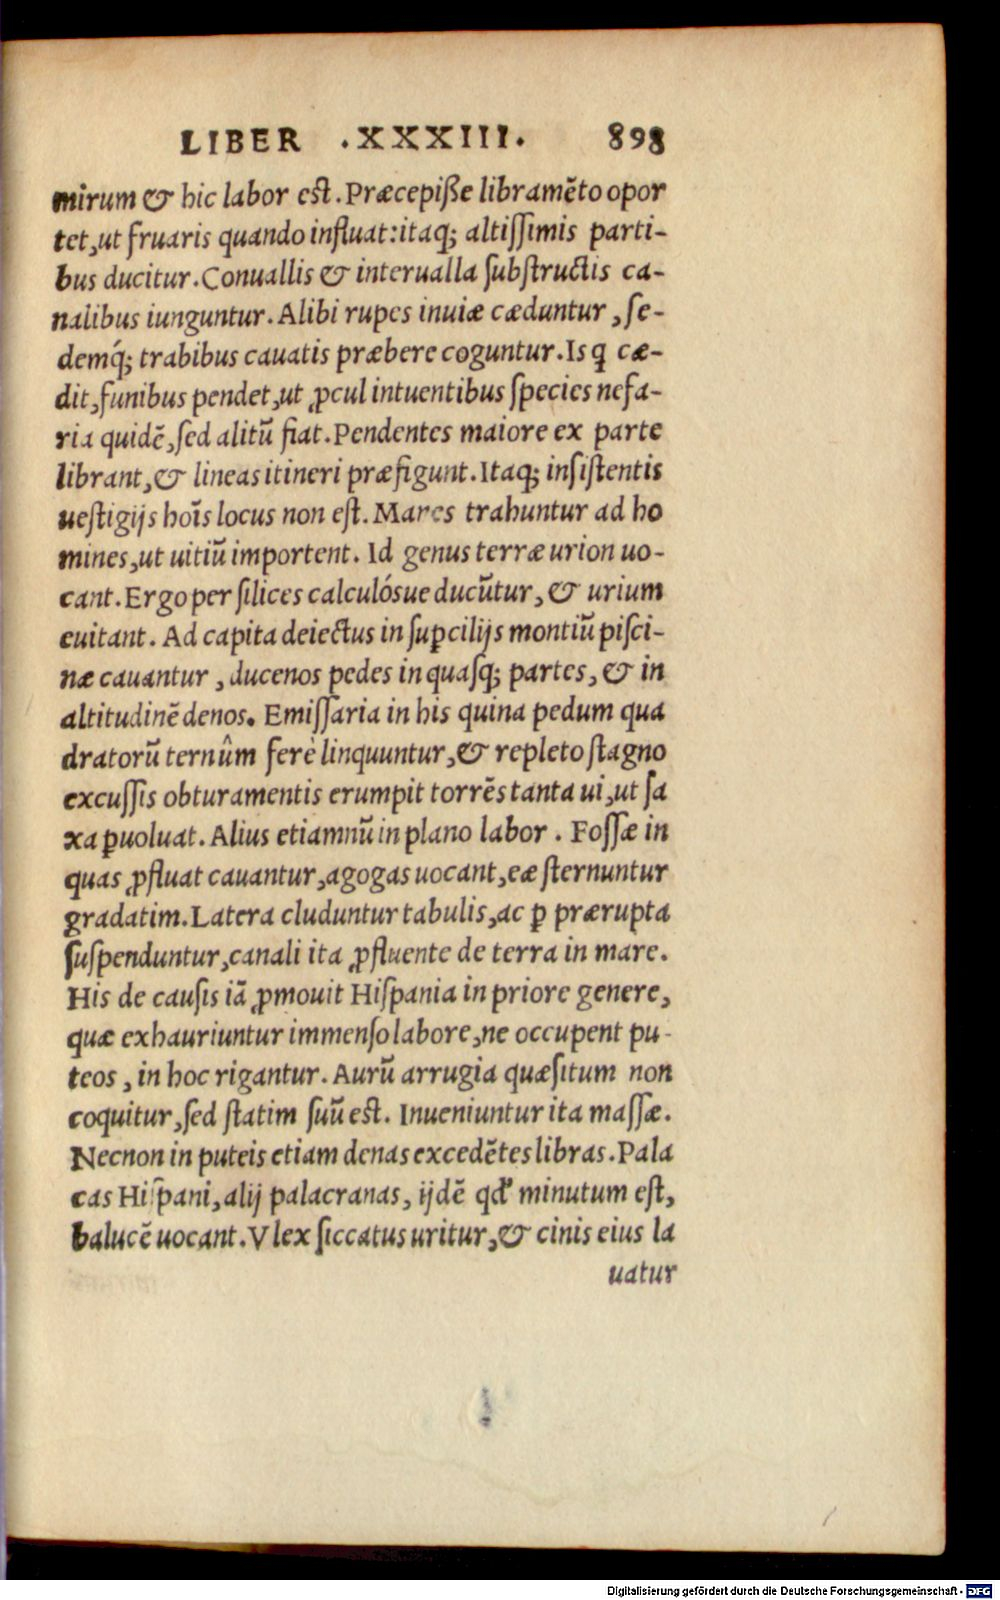 LIBER .XXXIII. 898
mirum & hic labor est. Præcepiße libramẽto opor
tet, ut fruaris quando influat: itaq; altissimis parti-
bus ducitur. Conuallis & interualla substructis ca-
nalibus iunguntur. Alibi rupes inuiæ cæduntur, se-
demq́; trabibus cauatis præbere coguntur. Is q̃ cæ-
dit, funibus pendet, ut ꝓcul intuentibus species nefa-
ria quidẽ, sed alitũ fiat. Pendentes maiore ex parte
librant, & lineas itineri præfigunt. Itaq; insistentis
uestigijs hoĩs locus non est. Mares trahuntur ad ho
mines, ut uitiũ importent. Id genus terræ urion uo-
cant. Ergo per silices calculósue ducũtur, & urium
euitant. Ad capita deiectus in suꝑcilijs montiũ pisci-
næ cauantur, ducenos pedes in quasq; partes, & in
altitudinẽ denos. Emissaria in his quina pedum qua
dratorũ ternûm ferè linquuntur, & repleto stagno
excussis obturamentis erumpit torrẽs tanta ui, ut sa
xa ꝑuoluat. Alius etiamnũ in plano labor. Fossæ in
quas ꝓfluat cauantur, agogas uocant, eæ sternuntur
gradatim. Latera cluduntur tabulis, ac ꝑ prærupta
suspenduntur, canali ita ꝓfluente de terra in mare.
His de causis iã ꝓmouit Hispania in priore genere,
quæ exhauriuntur immenso labore, ne occupent pu-
teos, in hoc rigantur. Aurũ arrugia quæsitum non
coquitur, sed statim suũ est. Inueniuntur ita massæ.
Necnon in puteis etiam denas excedẽtes libras. Pala
cas Hispani, alij palacranas, ijdẽ qđ minutum est,
balucẽ uocant. Vlex siccatus uritur, & cinis eius la
uatur
Digitalisierung gefördert durch die Deutsche Forschungsgemeinschaft - DFG